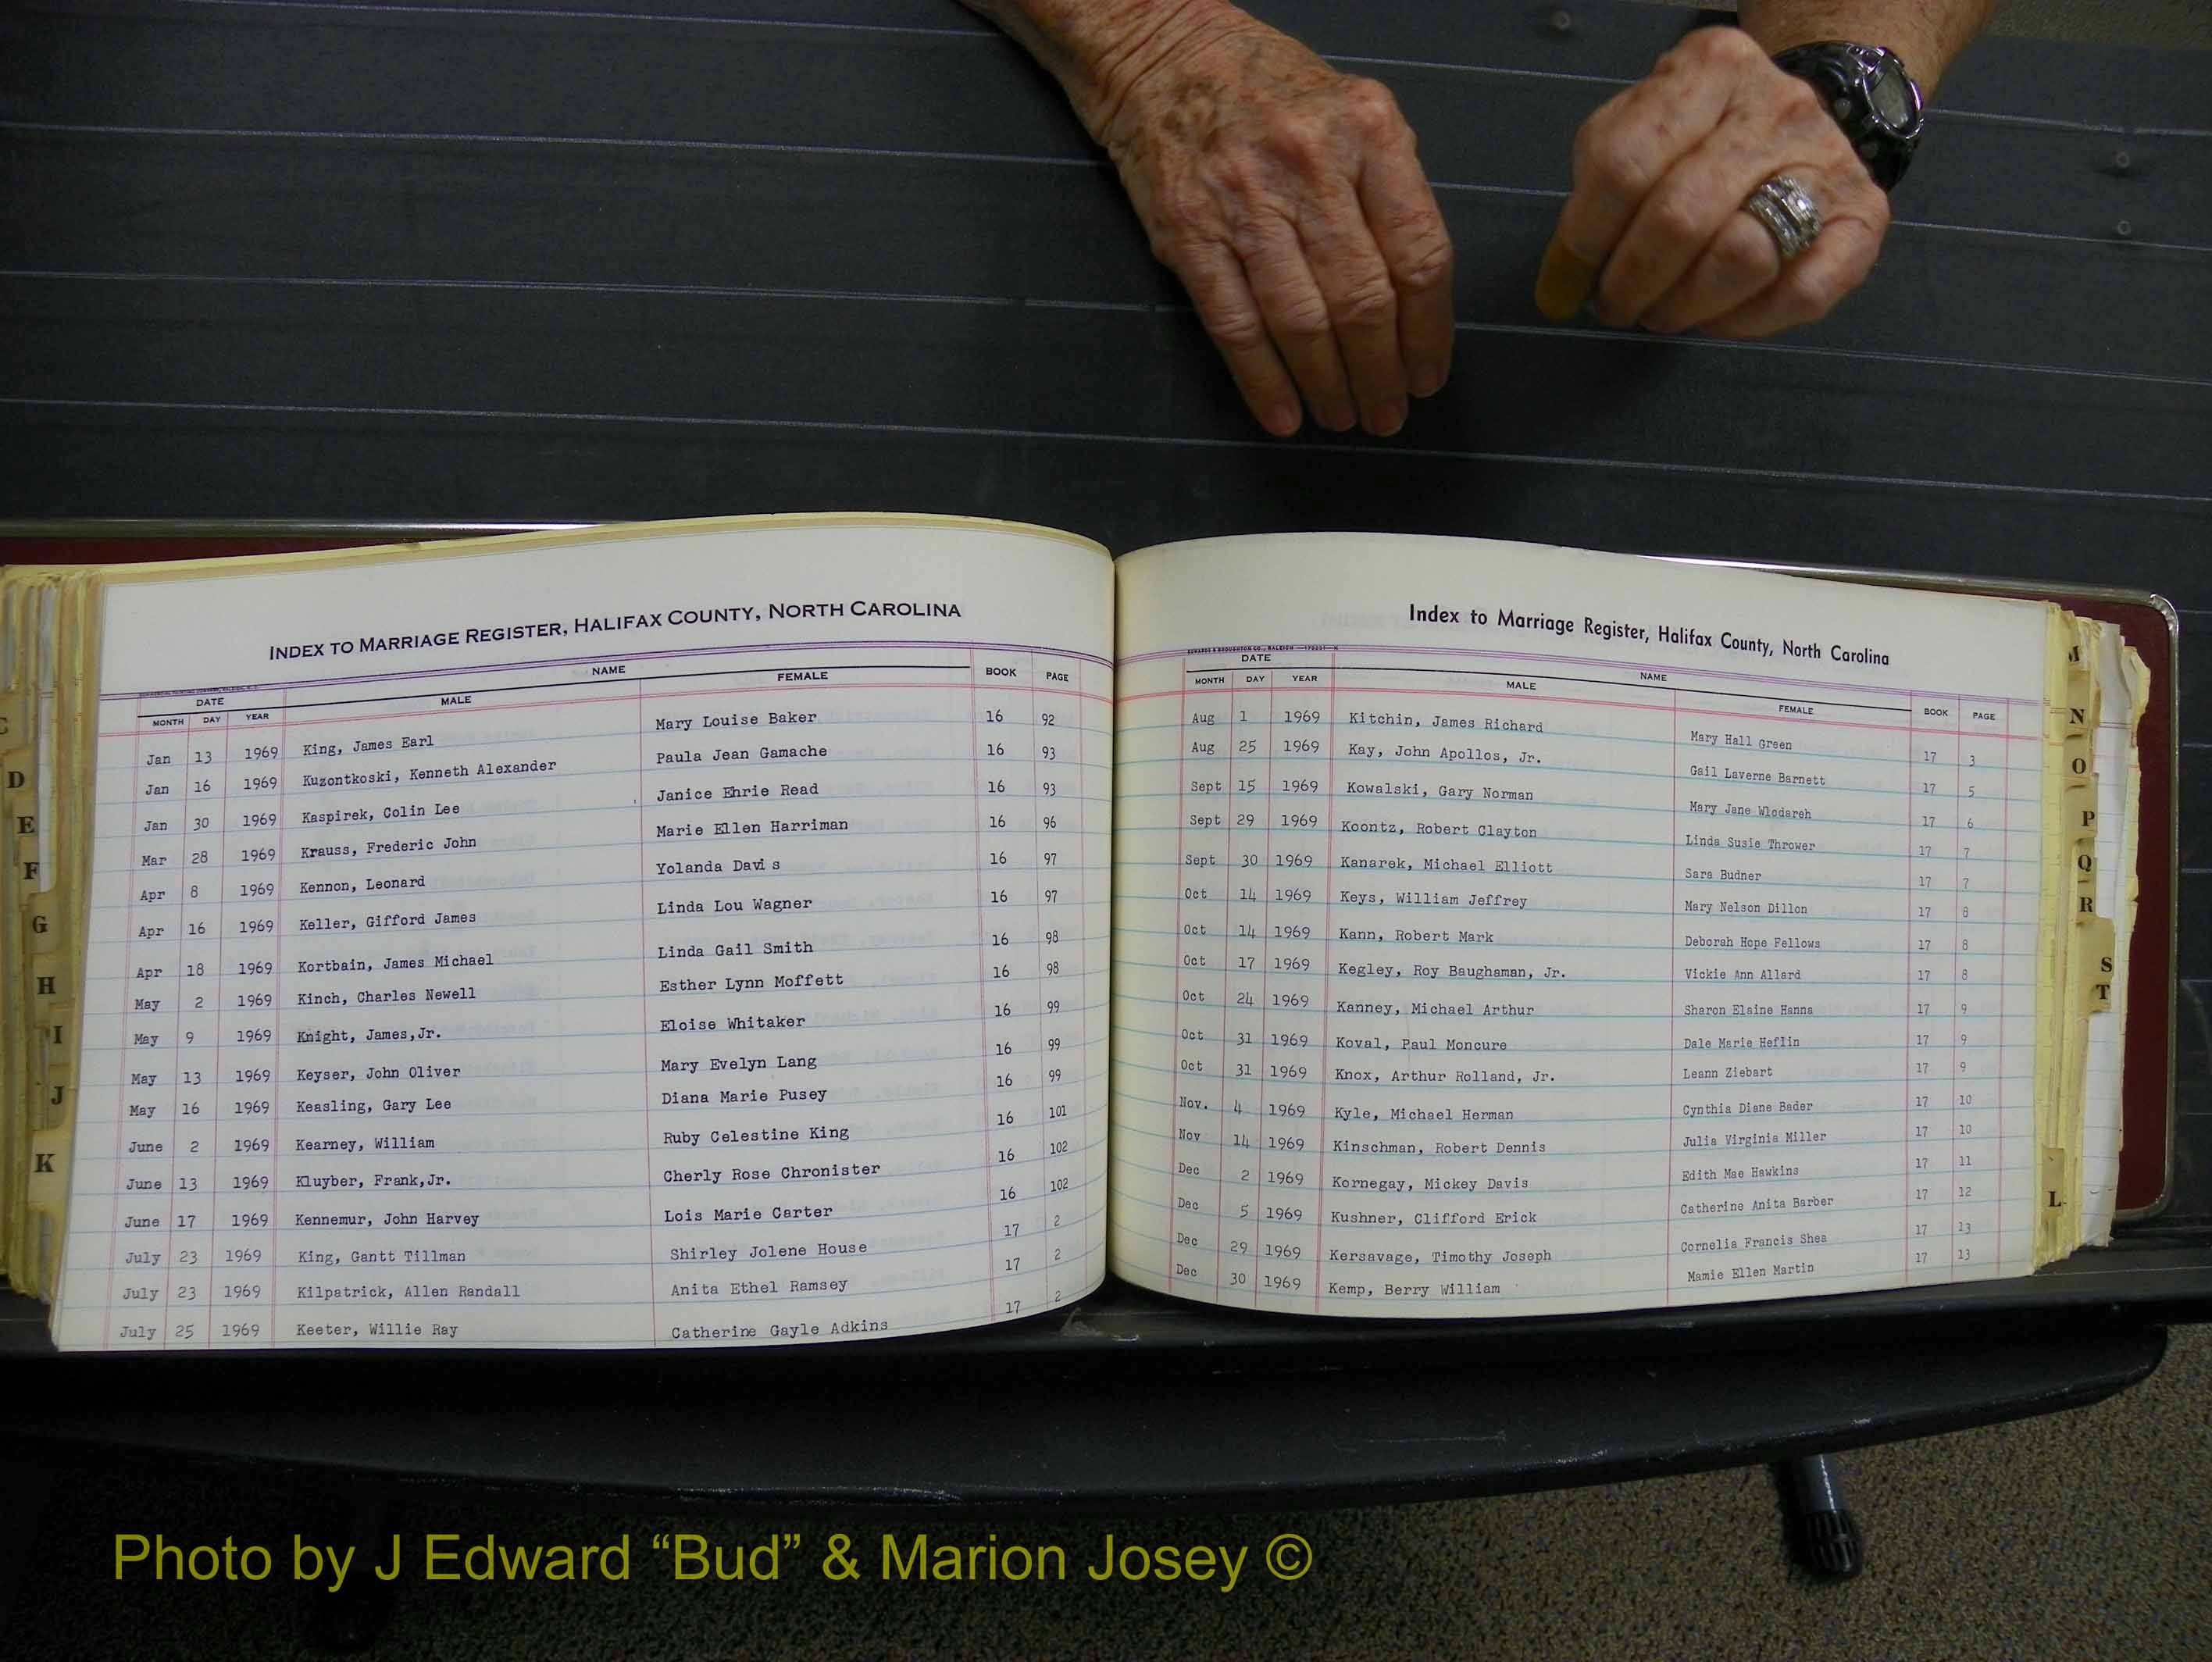 INDEX TO MARRIAGE REGISTER, HALIFAX COUNTY, NORTH CAROLINA
DATE NAME BOOK PAGE
MONTH DAY YEAR MALE FEMALE
Jan 13 1969 King, James Earl Mary Louise Baker 16 92
Jan 16 1969 Kuzontkoski, Kenneth Alexander Paula Jean Gamache 16 93
Jan 30 1969 Kaspirek, Colin Lee Janice Ehrie Read 16 93
Mar 28 1969 Krauss, Frederic John Marie Ellen Harriman 16 96
Apr 8 1969 Kennon, Leonard Yolanda Davis 16 97
Apr 16 1969 Keller, Gifford James Linda Lou Wagner 16 97
Apr 18 1969 Kortbain, James Michael Linda Gail Smith 16 98
May 2 1969 Kinch, Charles Newell Esther Lynn Moffett 16 98
May 9 1969 Knight, James,Jr. Eloise Whitaker 16 99
May 13 1969 Keyser, John Oliver Mary Evelyn Lang 16 99
May 16 1969 Keasling, Gary Lee Diana Marie Pusey 16 99
June 2 1969 Kearney, William Ruby Celestine King 16 101
June 13 1969 Kluyber, Frank,Jr. Cherly Rose Chronister 16 102
June 17 1969 Kennemur, John Harvey Lois Marie Carter 16 102
July 23 1969 King, Gantt Tillman Shirley Jolene House 17 2
July 23 1969 Kilpatrick, Allen Randall Anita Ethel Ramsey 17 2
July 25 1969 Keeter, Willie Ray Catherine Gayle Adkins 17 2
Index to Marriage Register, Halifax County, North Carolina
EDWARDS & BROUGHTON CO., RALEIGH
DATE NAME
MONTH DAY YEAR MALE FEMALE BOOK PAGE
Aug 1 1969 Kitchin, James Richard Mary Hall Green 17 3
Aug 25 1969 Kay, John Apollos, Jr. Gail Laverne Barnett 17 5
Sept 15 1969 Kowalski, Gary Norman Mary Jane Wlodareh 17 6
Sept 29 1969 Koontz, Robert Clayton Linda Susie Thrower 17 7
Sept 30 1969 Kanarek, Michael Elliott Sara Budner 17 7
Oct 14 1969 Keys, William Jeffrey Mary Nelson Dillon 17 8
Oct 14 1969 Kann, Robert Mark Deborah Hope Fellows 17 8
Oct 17 1969 Kegley, Roy Baughaman, Jr. Vickie Ann Allard 17 8
Oct 24 1969 Kanney, Michael Arthur Sharon Elaine Hanna 17 9
Oct 31 1969 Koval, Paul Moncure Dale Marie Heflin 17 9
Oct 31 1969 Knox, Arthur Rolland, Jr. Leann Ziebart 17 9
Nov. 4 1969 Kyle, Michael Herman Cynthia Diane Bader 17 10
Nov 14 1969 Kinschman, Robert Dennis Julia Virginia Miller 17 10
Dec 2 1969 Kornegay, Mickey Davis Edith Mae Hawkins 17 11
Dec 5 1969 Kushner, Clifford Erick Catherine Anita Barber 17 12
Dec 29 1969 Kersavage, Timothy Joseph Cornelia Francis Shea 17 13
Dec 30 1969 Kemp, Berry William Mamie Ellen Martin 17 13
C
D
E
F
G
H
I
J
K
M
N
O
P
Q
R
S
T
L
Photo by J Edward “Bud” & Marion Josey ©